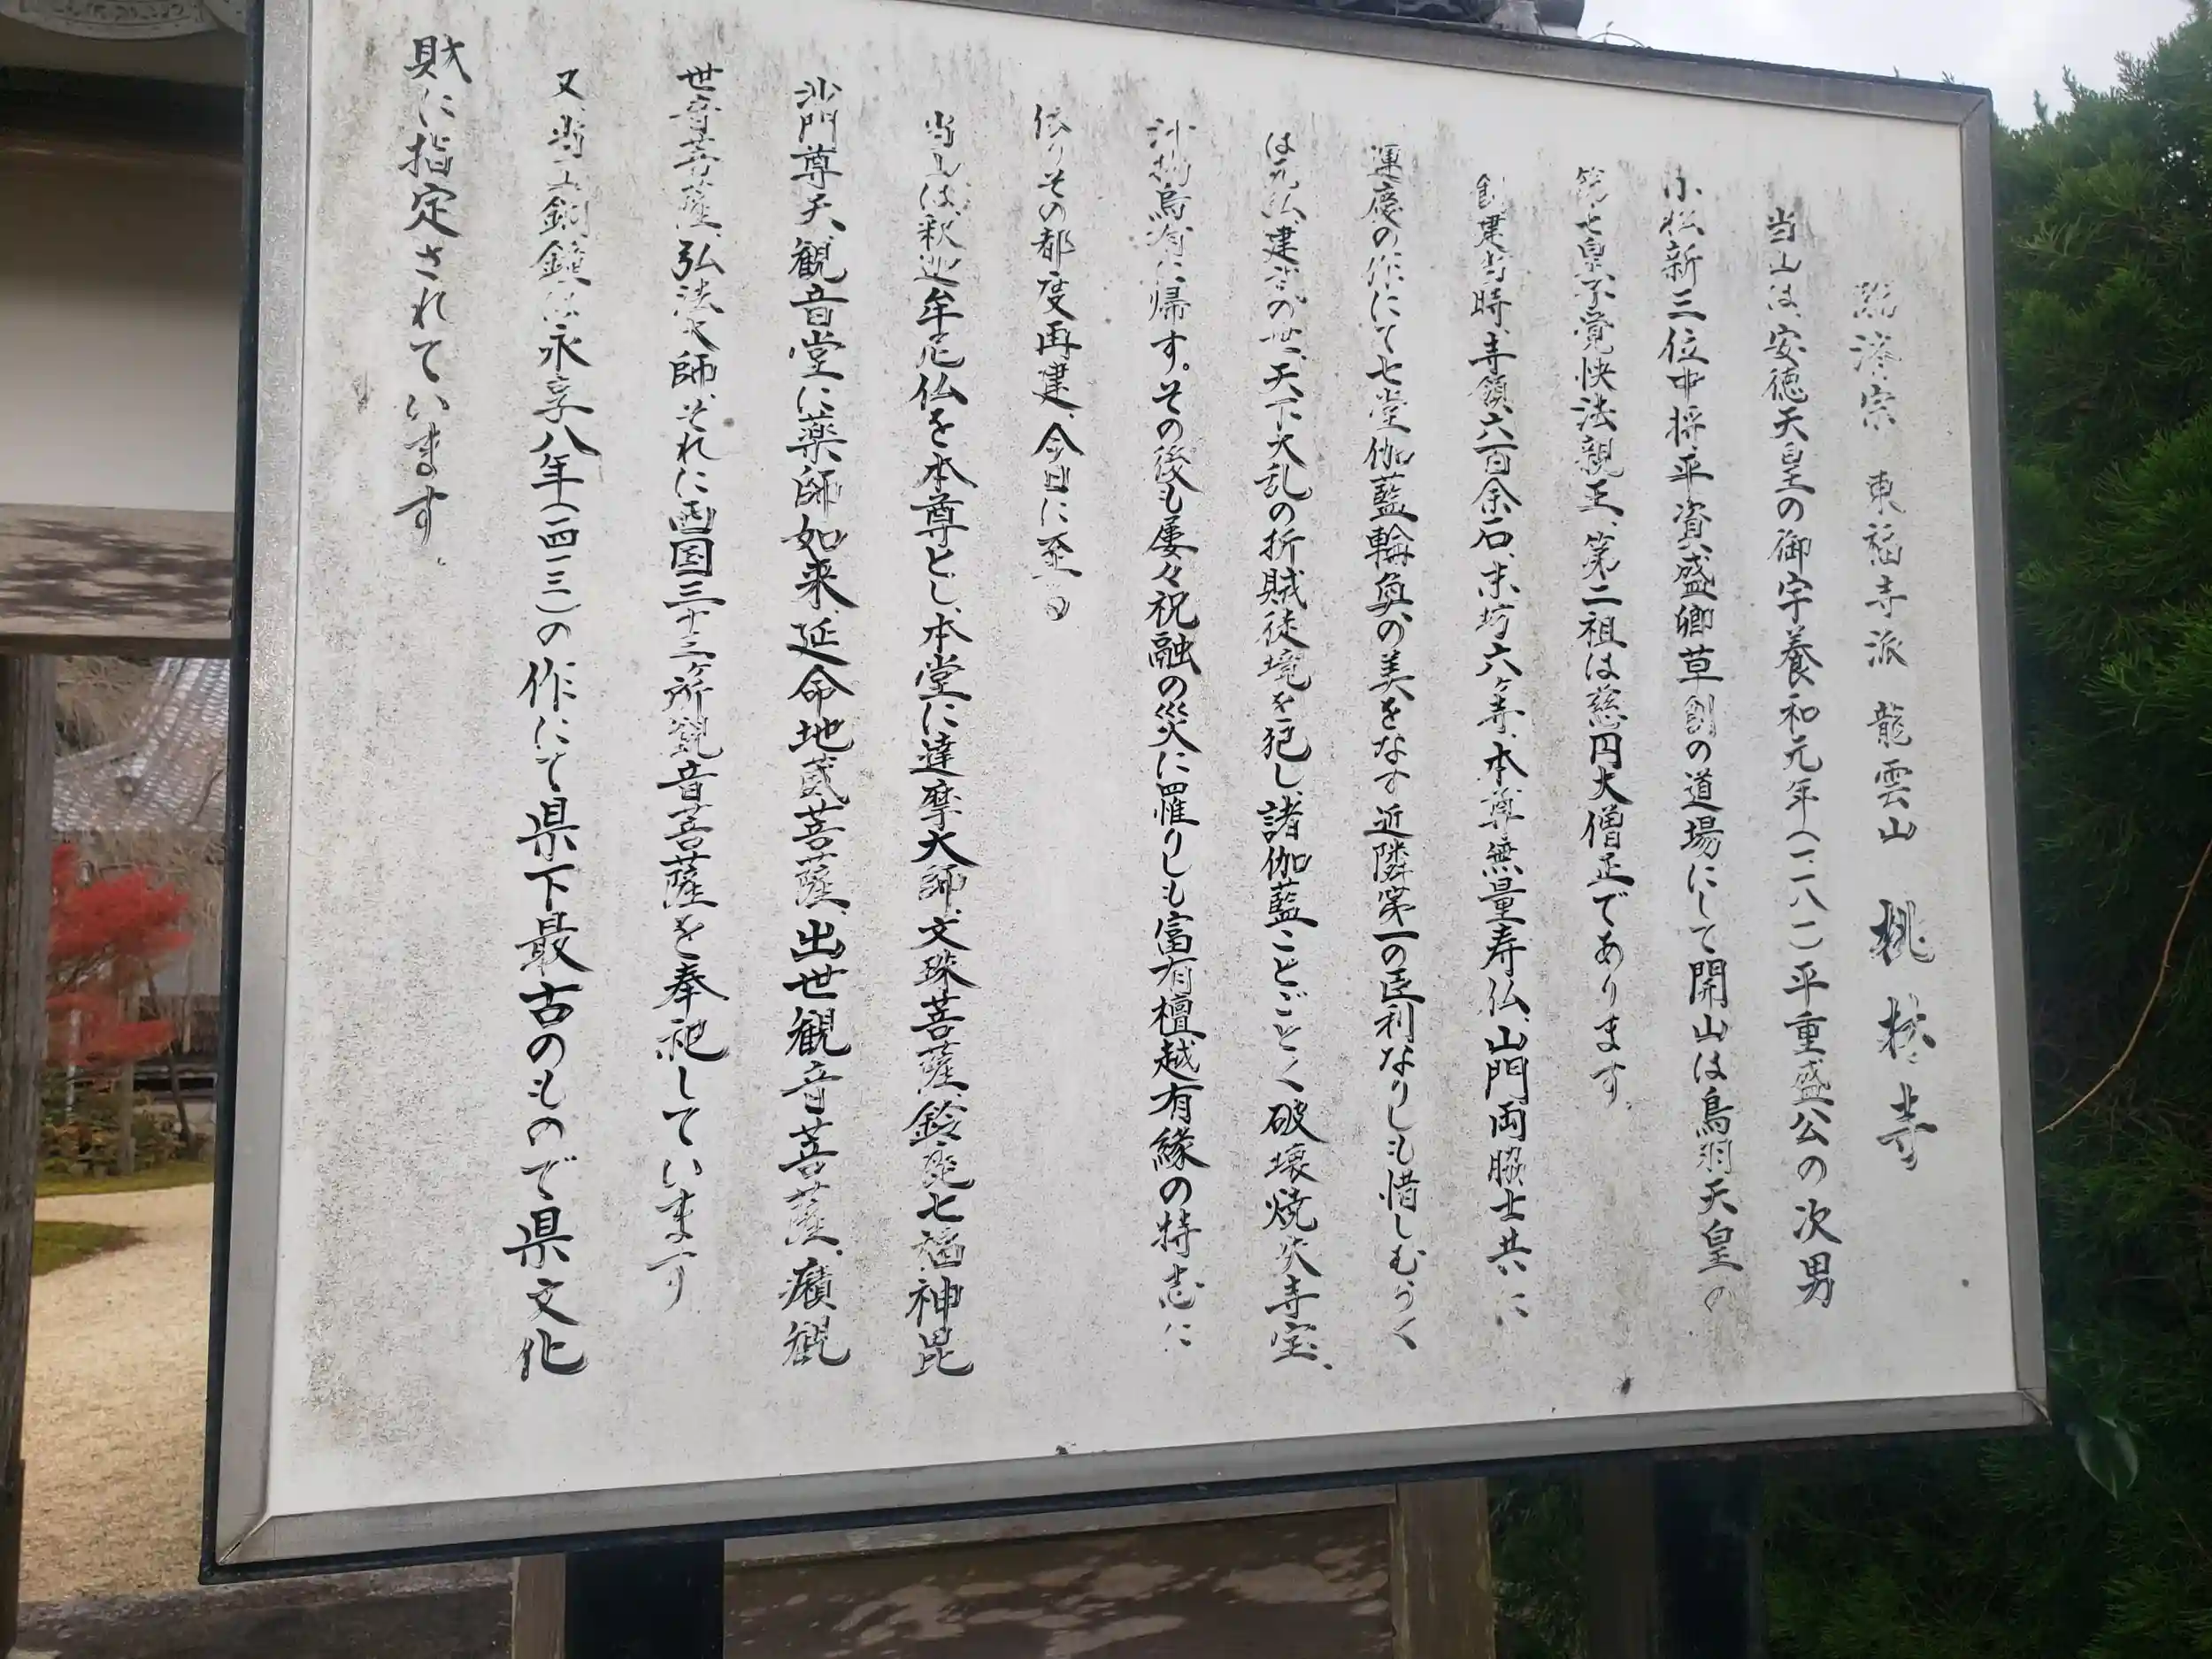 臨済宗 東福寺派 龍雲山 桃松寺
当山は、安徳天皇の御宇養和元年(一一八一)平重盛公の次男
小松新三位中将平資盛卿草創の道場にして開山は鳥羽天皇の
第七皇子覚快法親王、第二祖は慈円大僧正であります。
創建当時、寺領六百余石、末坊六ヶ寺、本尊無量寿仏、山門両脇士共に
運慶の作にて七堂伽藍輪奐の美をなす近隣第一の巨利なりしも惜しむらく
は元弘、建武の世、天下大乱の折賊徒境を犯し、諸伽藍ことごとく破壊焼失寺宝、
什物烏有に帰す。その後も屡々祝融の災に罹りしも富有檀越有縁の特志に
依りその都度再建、今日に至る
当山は、釈迦牟尼仏を本尊とし、本堂に達摩大師、文珠菩薩、鈴鹿七福神毘
沙門尊天、観音堂に薬師如来、延命地蔵菩薩、出世観音菩薩、癪観
世音菩薩、弘法大師、それに西国三十三ヶ所観音菩薩を奉祀しています
又、当山銅鐘は永享八年(一四三六)の作にて県下最古のもので県文化
財に指定されています。